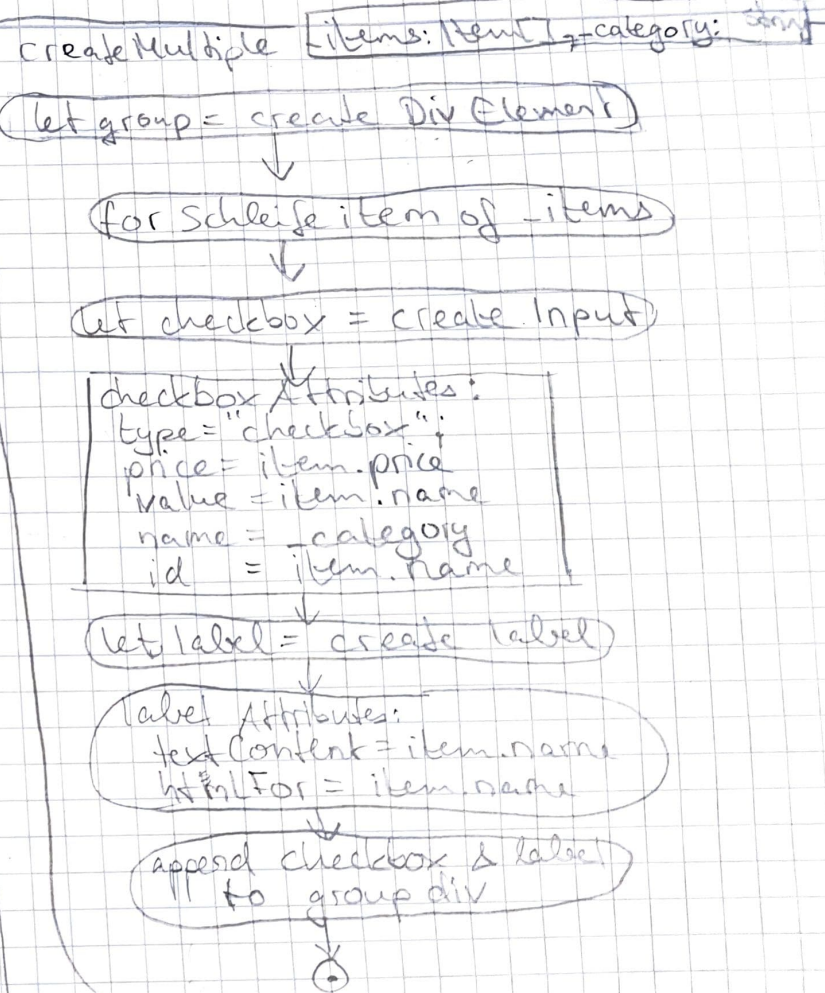 createMultiple _items: Item[], _category: string
let group = create Div Element
for Schleife item of _items
let checkbox = create Input
checkbox Attributes:
type="checkbox";
price = item.price
value = item.name
name = _category
id = item.name
let label = create label
label Attributes:
textContent = item.name
htmlFor = item.name
append checkbox & label
to group div